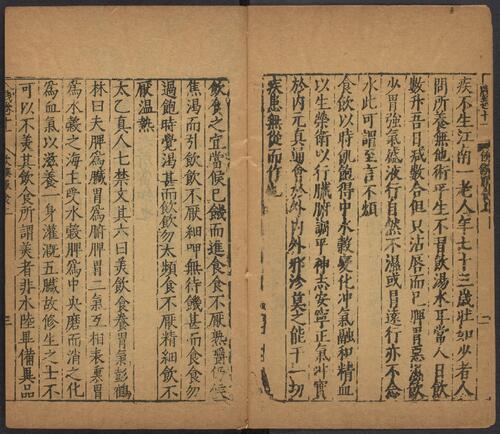 疾不生江南一老人年七十三歲壯如少者人
問所養無他術平生不習飲湯水耳常人日飲
數升吾日減數合但只沾唇而已脾胃惡濕飲
少胃強氣盛液行自然不濕或冒遠行亦不念
水此可謂至言不煩
食飲以時飢飽得中水穀變化冲氣融和精血
以生榮衛以行臟腑調平神志安寧正氣冲實
於內元真通會於外內外邪沴莫之能干一切
疾患無從而作也
飲食之宜當候已饑而進食食不厭熟嚼仍候
焦渴而引飲飲不厭細呷無待饑甚而食食勿
過飽時覺渴甚而飲飲勿太頻食不厭精細飲不
厭温熱
太乙真人七禁文其六曰美飲食養胃氣彭鶴
林曰夫脾為臟胃為腑脾胃二氣互相表裏胃
為水穀之海主受水穀脾為中央磨而消之化
為血氣以滋養一身灌溉五臟故修生之士不
可以不美其飲食所謂美者非水陸畢備異品